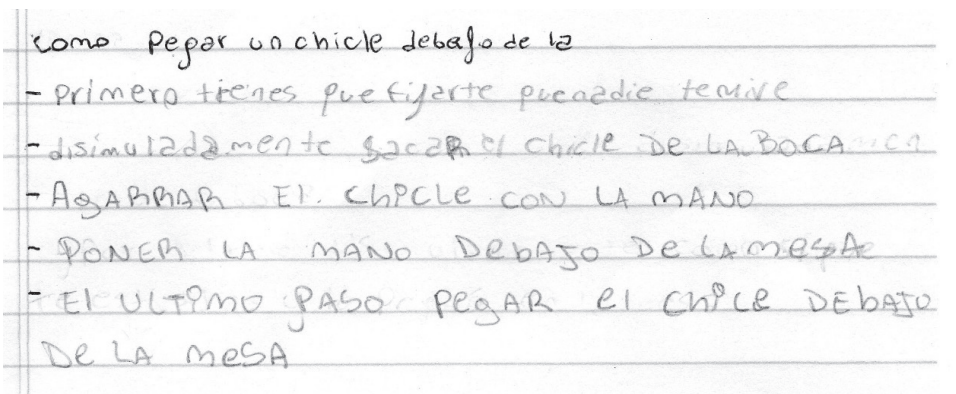 como pegar un chicle debajo de la
- primero tienes que fijarte que nadie te mire
- disimuladamente sacar el chicle DE LA BOCA
- AgARRAR El ChicLe CON LA mANO
- PONER LA mANO DebAJO De LA mesA
- El ULTimo PASO pegAR el chice DEbAJO
De LA meSA